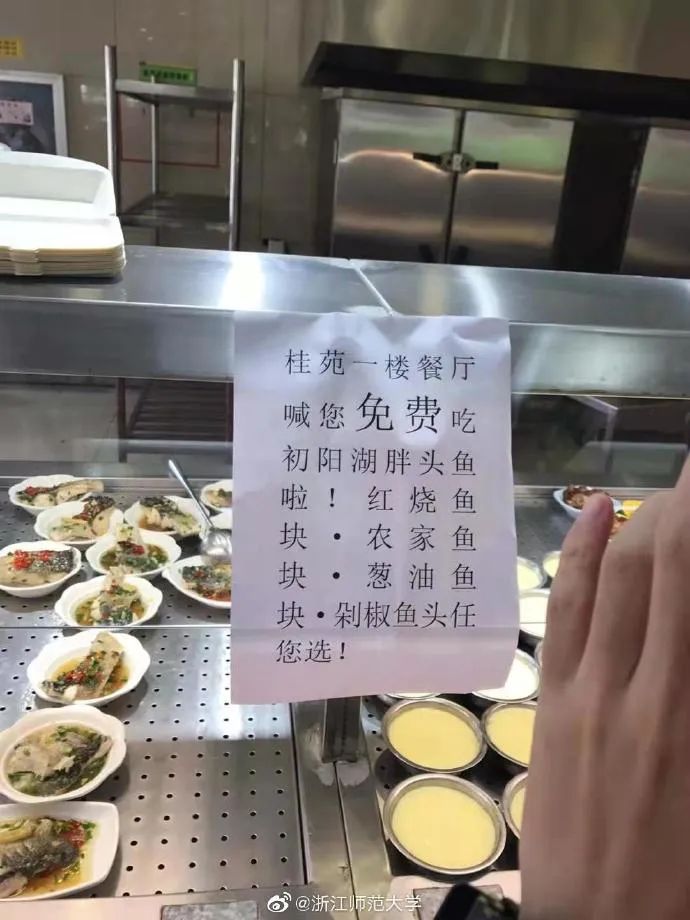 桂苑一楼餐厅
喊您免费吃
初阳湖胖头鱼
啦！红烧鱼
块·农家鱼
块·葱油鱼
块·剁椒鱼头任
您选！
@浙江师范大学